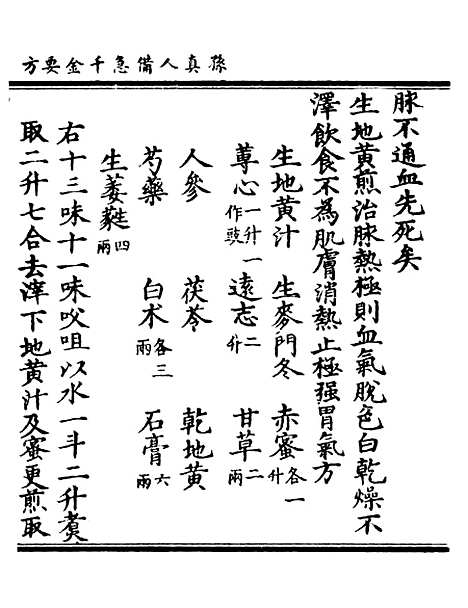 孫真人備急千金要方
脉不通血先死矣
生地黃煎治脉熱極則血氣脫色白乾燥不
澤飲食不為肌膚消熱止極强胃氣方
生地黃汁 生麥門冬 赤蜜各一升
蓴心一升一作豉 遠志二升 甘草二兩
人參 茯苓 乾地黃
芍藥 白术各三兩 石膏六兩
生萎蕤四兩
右十三味十一味㕮咀以水一斗二升煮
取二升七合去滓下地黃汁及蜜更煎取